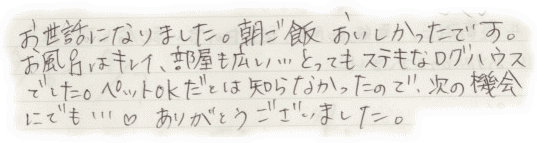 お世話になりました。朝ご飯 おいしかったです。
お風呂はキレイ、部屋も広い…とってもステキなログハウス
でした。ペットOKだとは知らなかったので、次の機会
にでも…♡ ありがとうございました。